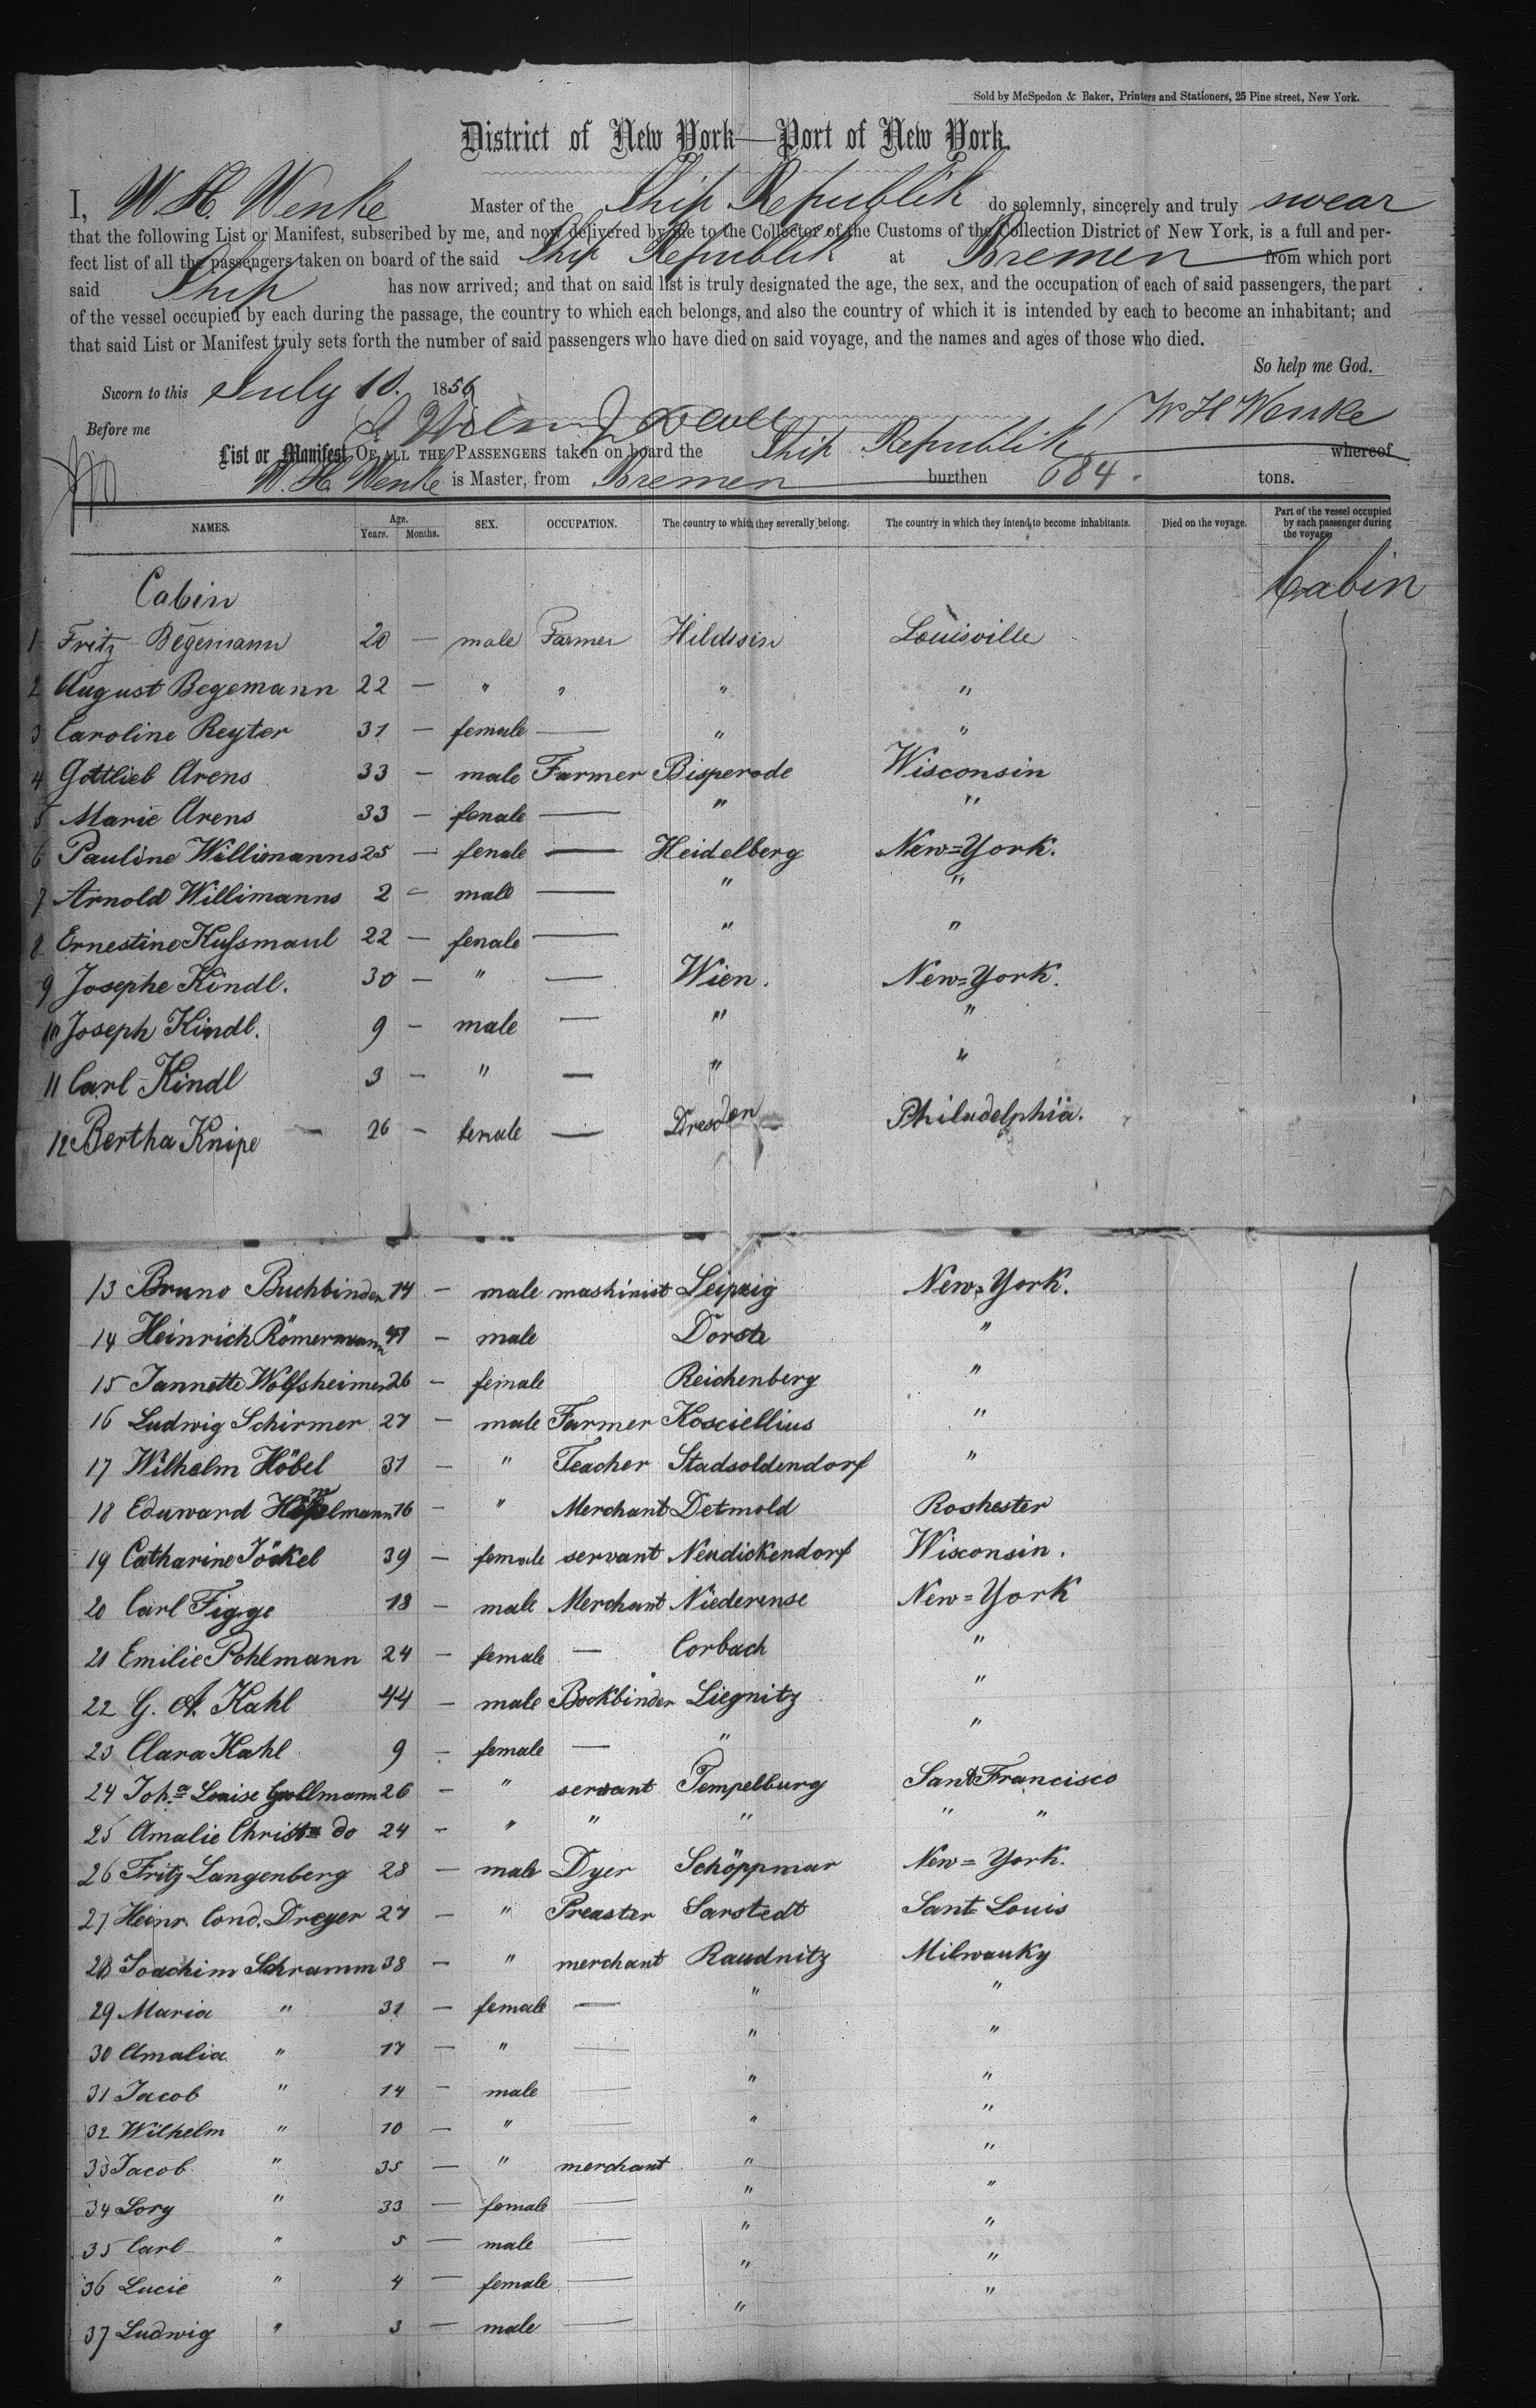 Sold by McSpedon & Baker, Printers and Stationers, 25 Pine street, New York.
District of New York—Port of New York.
I, W. H. Wenke Master of the Ship Republik do solemnly, sincerely and truly swear
that the following List or Manifest, subscribed by me, and now delivered by me to the Collector of the Customs of the Collection District of New York, is a full and per-
fect list of all the passengers taken on board of the said Ship Republik at Bremen from which port
said Ship has now arrived; and that on said list is truly designated the age, the sex, and the occupation of each of said passengers, the part
of the vessel occupied by each during the passage, the country to which each belongs, and also the country of which it is intended by each to become an inhabitant; and
that said List or Manifest truly sets forth the number of said passengers who have died on said voyage, and the names and ages of those who died.
So help me God.
Sworn to this July 10. 1856
W H Wenke
Before me
List or Manifest OF ALL THE PASSENGERS taken on board the Ship Republik whereof
W. H. Wenke is Master, from Bremen burthen 684. tons.
NAMES. Age. Years. Months. SEX. OCCUPATION. The country to which they severally belong. The country in which they intend to become inhabitants. Died on the voyage. Part of the vessel occupied by each passenger during the voyage.
Cabin Cabin
1 Fritz Begemann 20 — male Farmer Hildssin Louisville
2 August Begemann 22 — " " " "
3 Caroline Reyter 31 — female — " "
4 Gottlieb Arens 33 — male Farmer Bisperode Wisconsin
5 Marie Arens 33 — female — " "
6 Pauline Willimanns 25 — female — Heidelberg New=York.
7 Arnold Willimanns 2 — male — " "
8 Ernestine Kußmaul 22 — female — " "
9 Josephe Kindl. 30 — " — Wien. New=York.
10 Joseph Kindl. 9 — male — " "
11 Carl Kindl 3 — " — " "
12 Bertha Knipe — 26 — female — Dresden Philadelphia.
13 Bruno Buchbinder 14 — male mashinist Leipzig New=York.
14 Heinrich Römermann 41 — male Dorste "
15 Jannette Wolfsheimer 26 — female Reichenberg "
16 Ludwig Schirmer 27 — male Farmer Kosciellius "
17 Wilhelm Höbel 31 — " Teacher Stadsoldendorf "
18 Eduward 16 — " Merchant Detmold Roshester
19 Catharine Jöckel 39 — female servant Neudickendorf Wisconsin.
20 Carl Figge 18 — male Merchant Niederense New=York
21 Emilie Pohlmann 24 — female — Corbach "
22 G. A. Kahl 44 — male Bookbinder Liegnitz "
23 Clara Kahl 9 — female — " "
24 Joha Louise Grollmann 26 — " servant Tempelburg Sant Francisco
25 Amalie Christe do 24 — " " " " "
26 Fritz Langenberg 28 — male Dyer Schöppmar New=York.
27 Heinr. Cond. Dreyer 27 — " Preaster Sarstedt Sant Louis
28 Joachim Schramm 38 — " merchant Raudnitz Milwauky
29 Maria " 31 — female — " "
30 Amalia " 17 — " — " "
31 Jacob " 14 — male — " "
32 Wilhelm " 10 — " — " "
33 Jacob " 35 — " merchant " "
34 Lory " 33 — female — " "
35 Carl " 5 — male — " "
36 Lucie " 4 — female — " "
37 Ludwig " 3 — male — " "